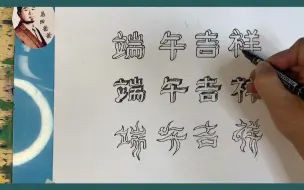 端午吉祥
端午吉祥
端午吉祥